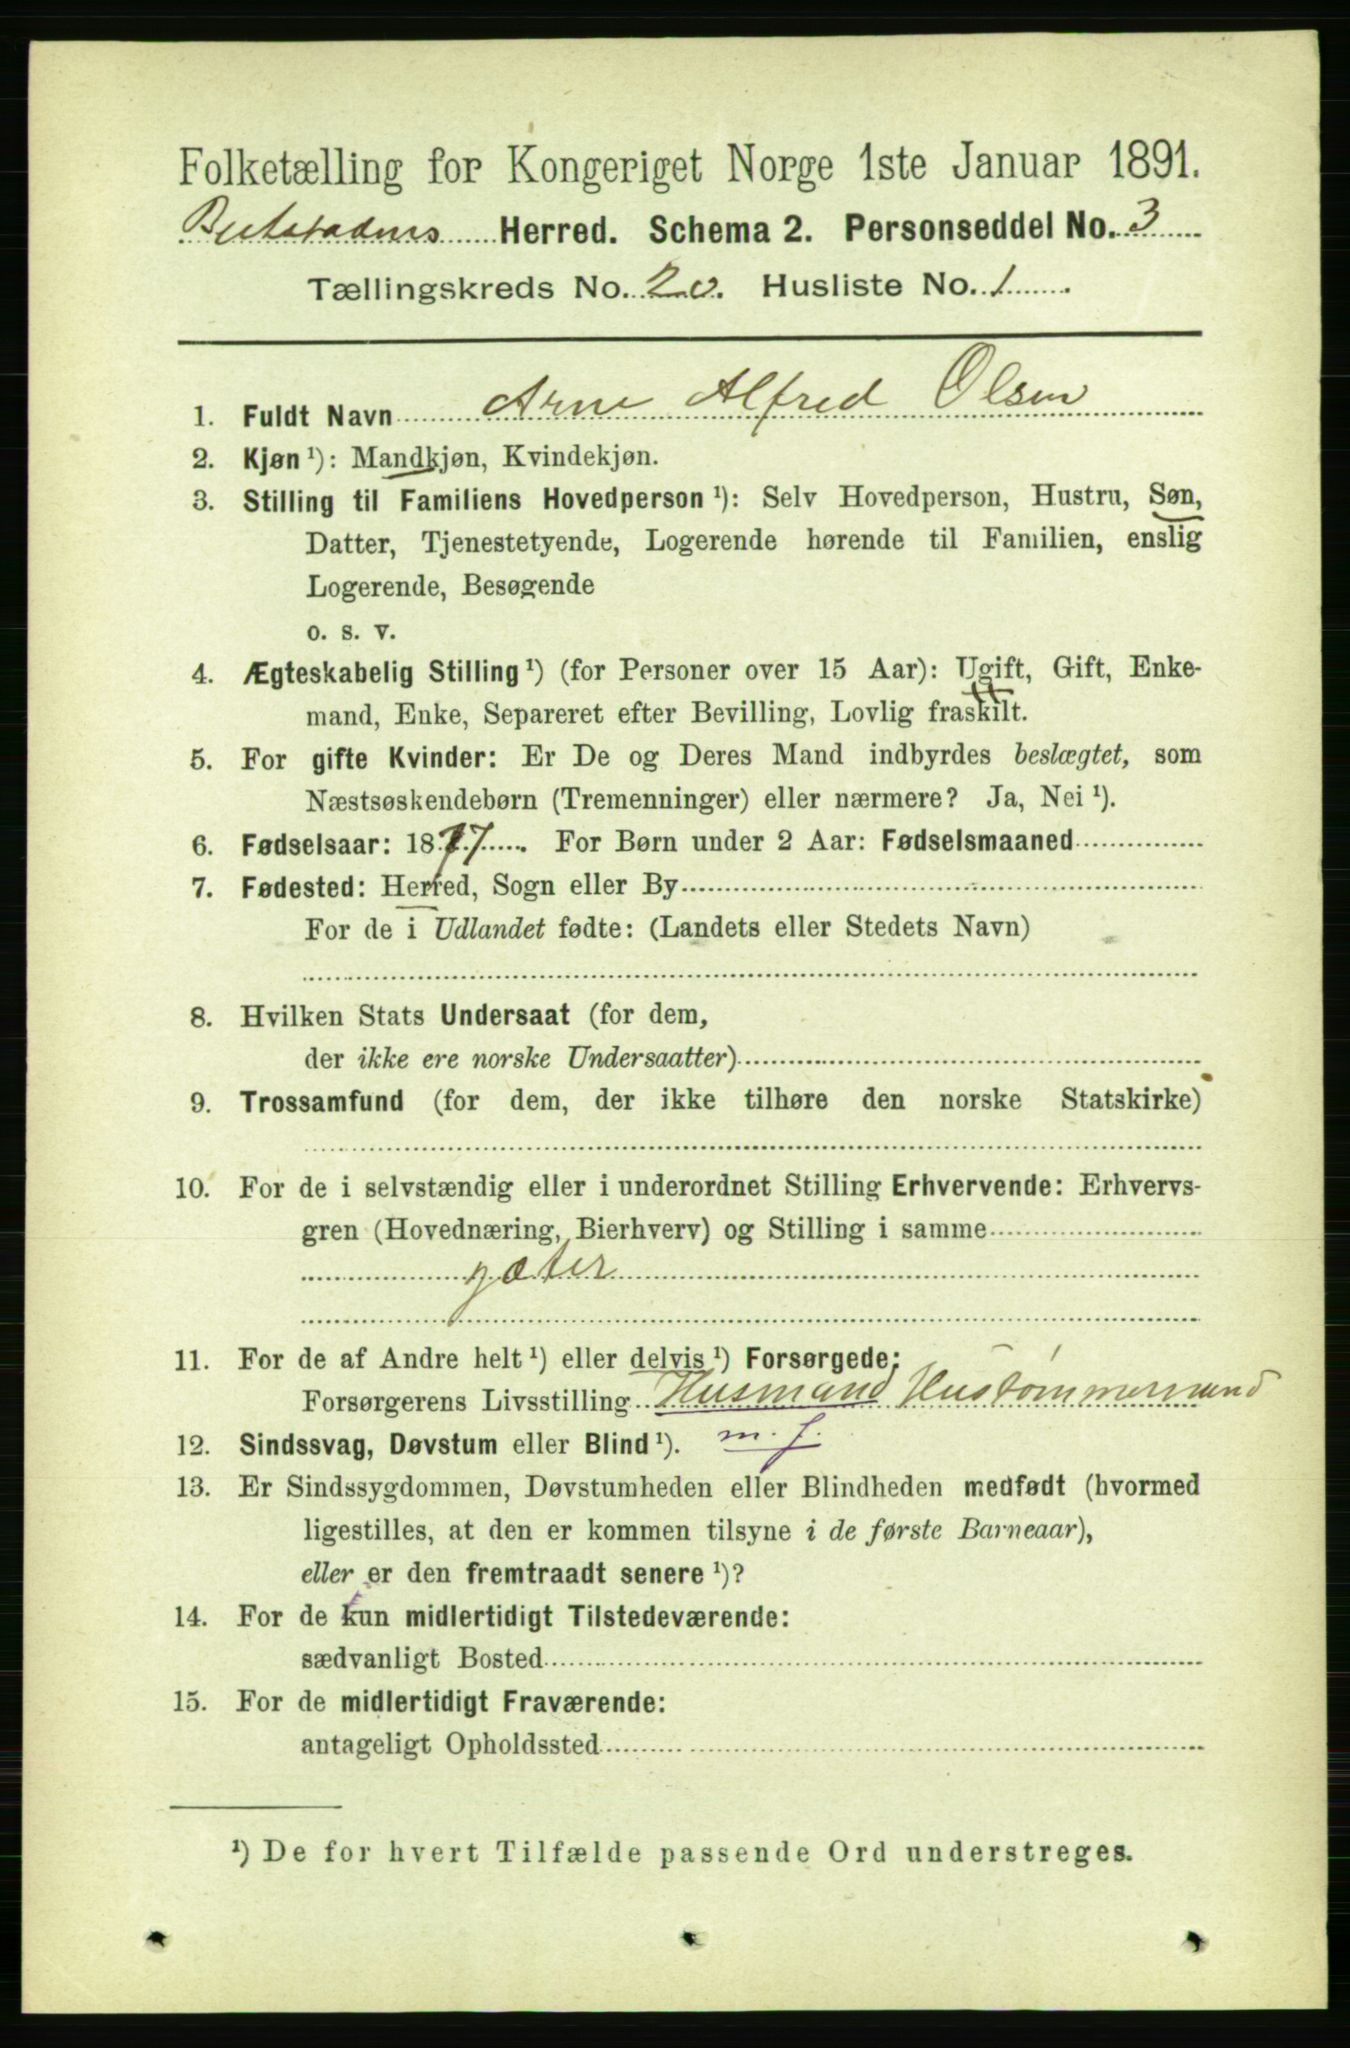 Folketælling for Kongeriget Norge 1ste Januar 1891.
Beitstadens Herred. Schema 2. Personseddel No. 3
Tællingskreds No. 20. Husliste No. 1
1. Fuldt Navn Arne Alfred Olsen
2. Kjøn ¹): Mandkjøn, Kvindekjøn.
3. Stilling til Familiens Hovedperson ¹): Selv Hovedperson, Hustru, Søn,
Datter, Tjenestetyende, Logerende hørende til Familien, enslig
Logerende, Besøgende
o. s. v.
4. Ægteskabelig Stilling ¹) (for Personer over 15 Aar): Ugift, Gift, Enke-
mand, Enke, Separeret efter Bevilling, Lovlig fraskilt.
5. For gifte Kvinder: Er De og Deres Mand indbyrdes beslægtet, som
Næstsøskendebørn (Tremenninger) eller nærmere? Ja, Nei ¹).
6. Fødselsaar: 1877. For Børn under 2 Aar: Fødselsmaaned
7. Fødested: Herred, Sogn eller By
For de i Udlandet fødte: (Landets eller Stedets Navn)
8. Hvilken Stats Undersaat (for dem,
der ikke ere norske Undersaatter)
9. Trossamfund (for dem, der ikke tilhøre den norske Statskirke)
10. For de i selvstændig eller i underordnet Stilling Erhvervende: Erhvervs-
gren (Hovednæring, Bierhverv) og Stilling i samme
gæter
11. For de af Andre helt ¹) eller delvis ¹) Forsørgede:
Forsørgerens Livsstilling Husmand Hustømmermand
12. Sindssvag, Døvstum eller Blind ¹). m. j.
13. Er Sindssygdommen, Døvstumheden eller Blindheden medfødt (hvormed
ligestilles, at den er kommen tilsyne i de første Barneaar),
eller er den fremtraadt senere ¹)?
14. For de kun midlertidigt Tilstedeværende:
sædvanligt Bosted
15. For de midlertidigt Fraværende:
antageligt Opholdssted
¹) De for hvert Tilfælde passende Ord understreges.